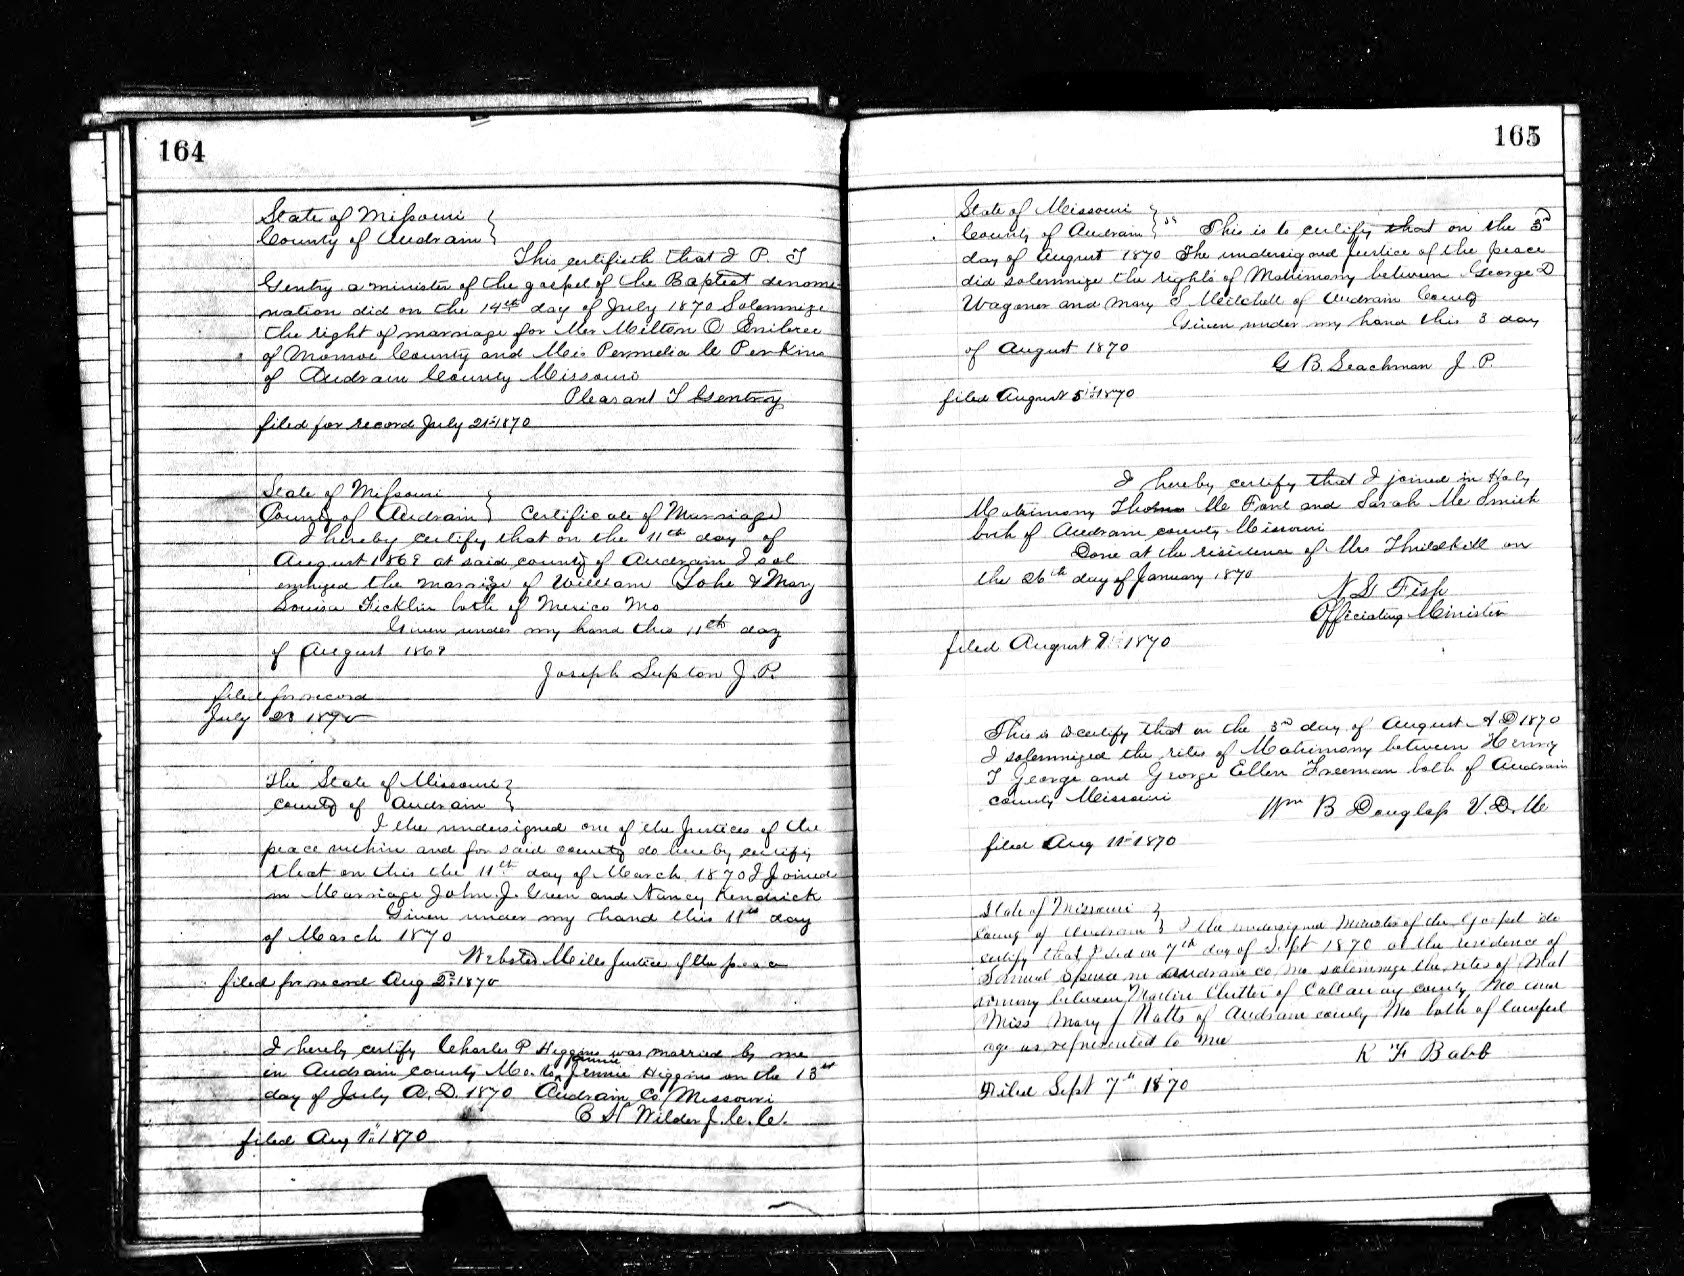 164
State of Missouri
County of Audrain
This certifieth that I P. T
Gentry a minister of the gospel of the Baptist denomi
nation did on the 14th day of July 1870 Solemnize
the right of marriage for Mr Milton O Embree
of Monroe County and Mis Permelia C Perkins
of Audrain County Missouri
Pleasant T Gentry
filed for record July 21st 1870
State of Missouri
County of Audrain Certificate of Marriage
I hereby certify that on the 11th day of
August 1869 at said county of Audrain I sol
emnized the marriage of William & Mary
Louisa Ficklin both of Mexico Mo
Given under my hand this 11th day
of August 1869
Joseph Lupton J. P.
filed for record
July 23 1870
The State of Missouri
county of Audrain
I the undersigned one of the Justices of the
peace within and for said county do hereby certify
that on this the 11th day of March 1870 I Joined
in Marriage John J. Green and Nancy Kendrick
Given under my hand this 11th day
of March 1870
Webster Mills Justice of the peace
filed for record Aug 2d 1870
I hereby certify Charles P Higgins was married by me
Jennie
in Audrain county Mo to Jennie Higgins on the 13th
day of July A.D. 1870 Audrain Co. Missouri
C H Wilder J. C. C.
filed Aug 1870
165
State of Missouri
County of Audrain ss This is to certify that on the 3rd
day of August 1870 The undersigned Justice of the peace
did solemnize the rights of Matrimony between George D
Wagoner and Mary S Mitchell of Audrain County
Given under my hand this 3 day
of August 1870
G B. Leachman J. P.
filed August 5th 1870
I hereby certify that I joined in Holy
Matrimony Thomas and Sarah Mc Smith
both of Audrain county Missouri
Done at the residence of Mrs Thrildkill on
the 26th day of January 1870
N. G Fish
Officiating Minister
filed August 9 1870
This is to certify that on the 3rd day of August A D 1870
I solemnized the rites of Matrimony between Henry
T George and George Ellen Freeman both of Audrain
county Missouri
Wm B Douglass V. D. M
filed Aug 11th 1870
State of Missouri
County of Audrain I the undersigned Minister of the Gospel do
certify that I did on 7th day of Sept 1870 at the residence of
Samuel Spence in Audrain co Mo solemnize the rites of Mat
rimony between Martin Clutter of Callaway county Mo and
Miss Mary J Watts of Audrain county Mo both of lawful
age as represented to me
R F Babb
Filed Sept 7th 1870